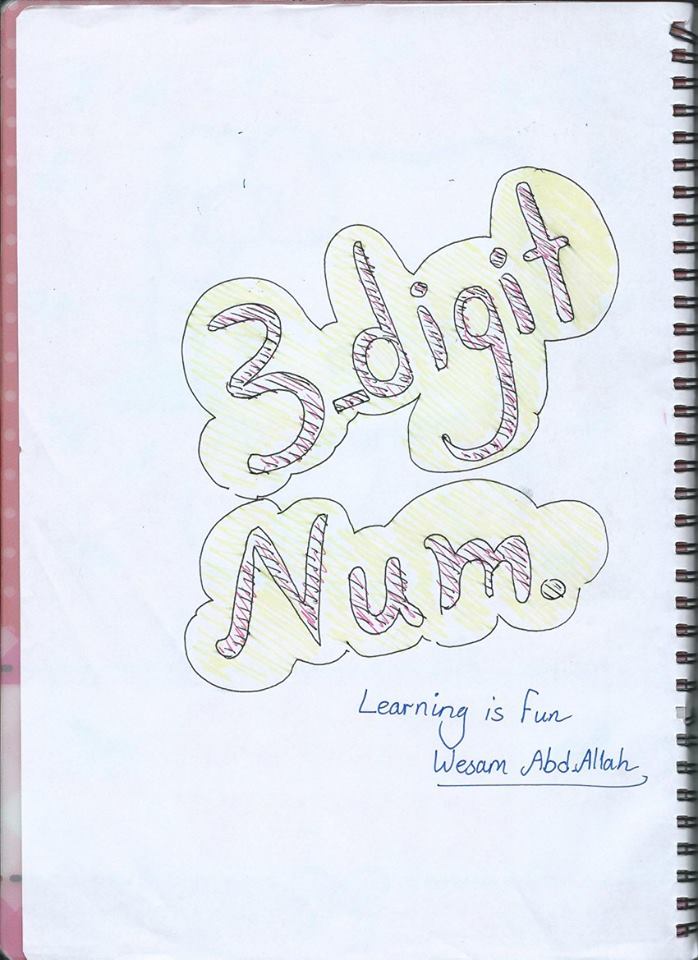 3-digit
Num.
Learning is Fun
Wesam Abd.Allah